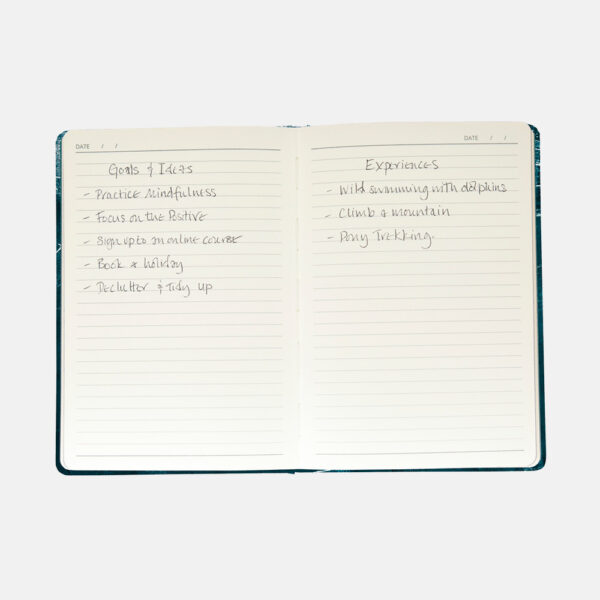 DATE / /
Goals & Ideas
- Practice Mindfulness
- Focus on the Positive
- Sign up to an online course
- Book a holiday
- Declutter & Tidy up
DATE / /
Experiences
- Wild swimming with dolphins
- Climb a mountain
- Pony Trekking.